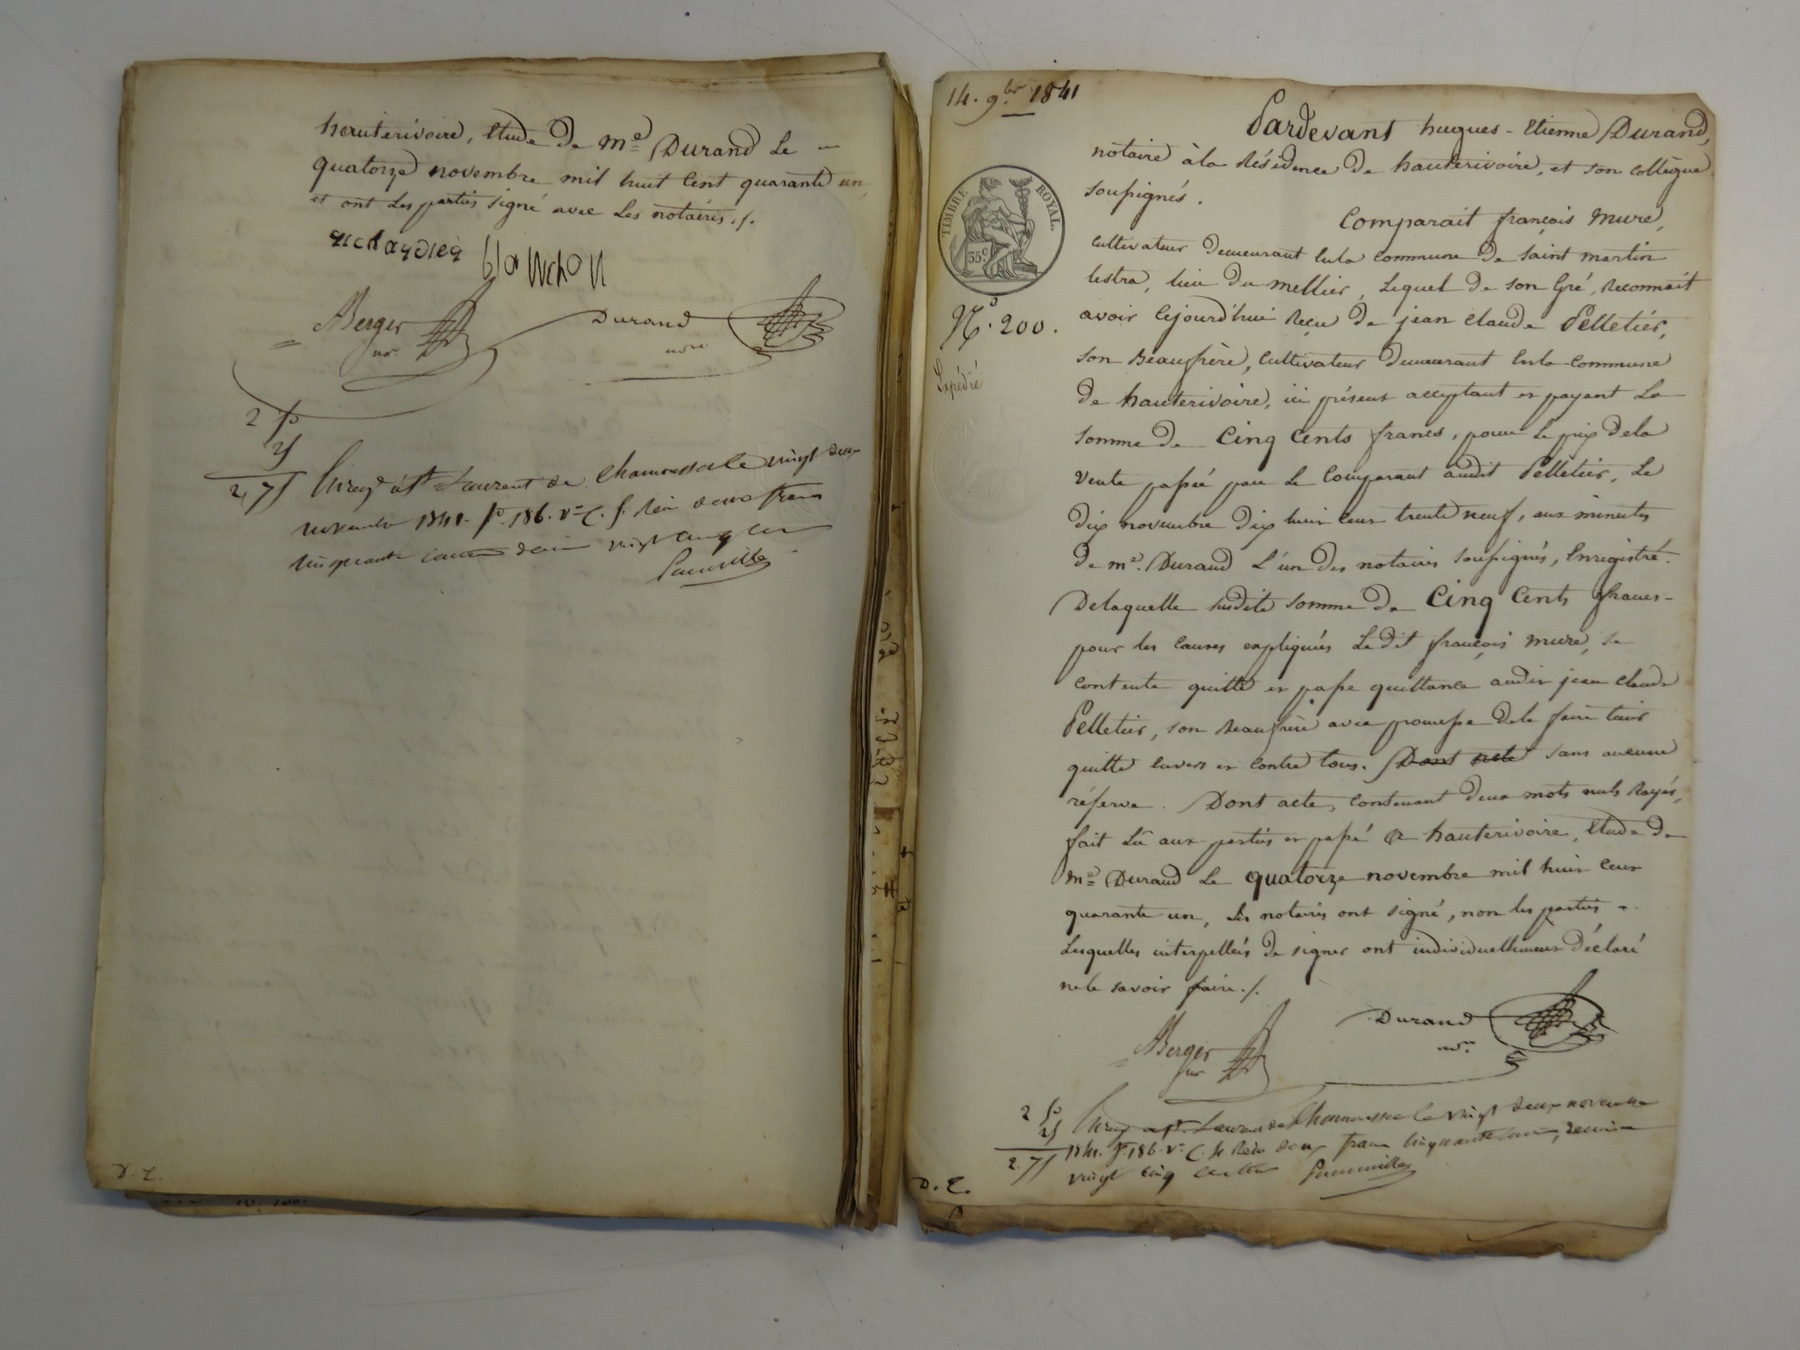 hauterivoire, Etude de me Durand Le -
quatorze novembre mil huit Cent quarante un
et ont Les parties signé avec Les notaires./.
blanchon
ABerger
nre
Durand
nre
2 fo
25
2,75
Enregé à St Laurent de Chamousset le vingt deux
novembre 1841. fo. 186. vo C. 5. Reçu deux francs
cinquante centimes decime vingt cinq cen
D. E.
14. 9bre 1841
Pardevant hugues-Etienne Durand,
notaire à la Résidence de hauterivoire, et son collègue
soussignés.
TIMBRE ROYAL.
35c
Comparait françois Mure,
cultivateur demeurant En la commune de saint martin
lestra, lieu du mellier, Lequel de son Gré, Reconnait
No. 200.
avoir Cejourd'hui Reçu de jean claude Pelletier,
Expédié
son Beaufrère, Cultivateur demeurant En la commune
de hauterivoire, ici présent acceptant et payant La
somme de Cinq Cents francs, pour Le prix dela
vente passée par Le Comparant audit Pelletier, Le
dix novembre dix huit cent trente neuf, aux minutes
de me. Durand L'un des notaires soussignés, Enregistré.
De laquelle susdite somme de Cinq Cents francs -
pour les causes expliquées Le dit françois mure, se
contente quitte et passe quittance audit jean claude
Pelletier, son Beaufrère avec promesse dele faire tenir
quitte envers et contre tous. Dont acte sans aucune
réserve. Dont acte, contenant deux mots nuls Rayés,
fait Lu aux parties et passé a hauterivoire, Etude de
me Durand Le quatorze novembre mil huit cent
quarante un, Les notaires ont signé, non les parties -
Lesquelles interpellées de signer ont individuellement déclaré
ne le savoir faire./.
Durand
nre
ABerger
nre
2 fo
25
2.75
Enregé à St. Laurent de Chamousset le vingt deux novembre
1841. fo. 186. vo C. 4 Reçu deux francs cinquante cent, decime
vingt cinq centimes
D. E.